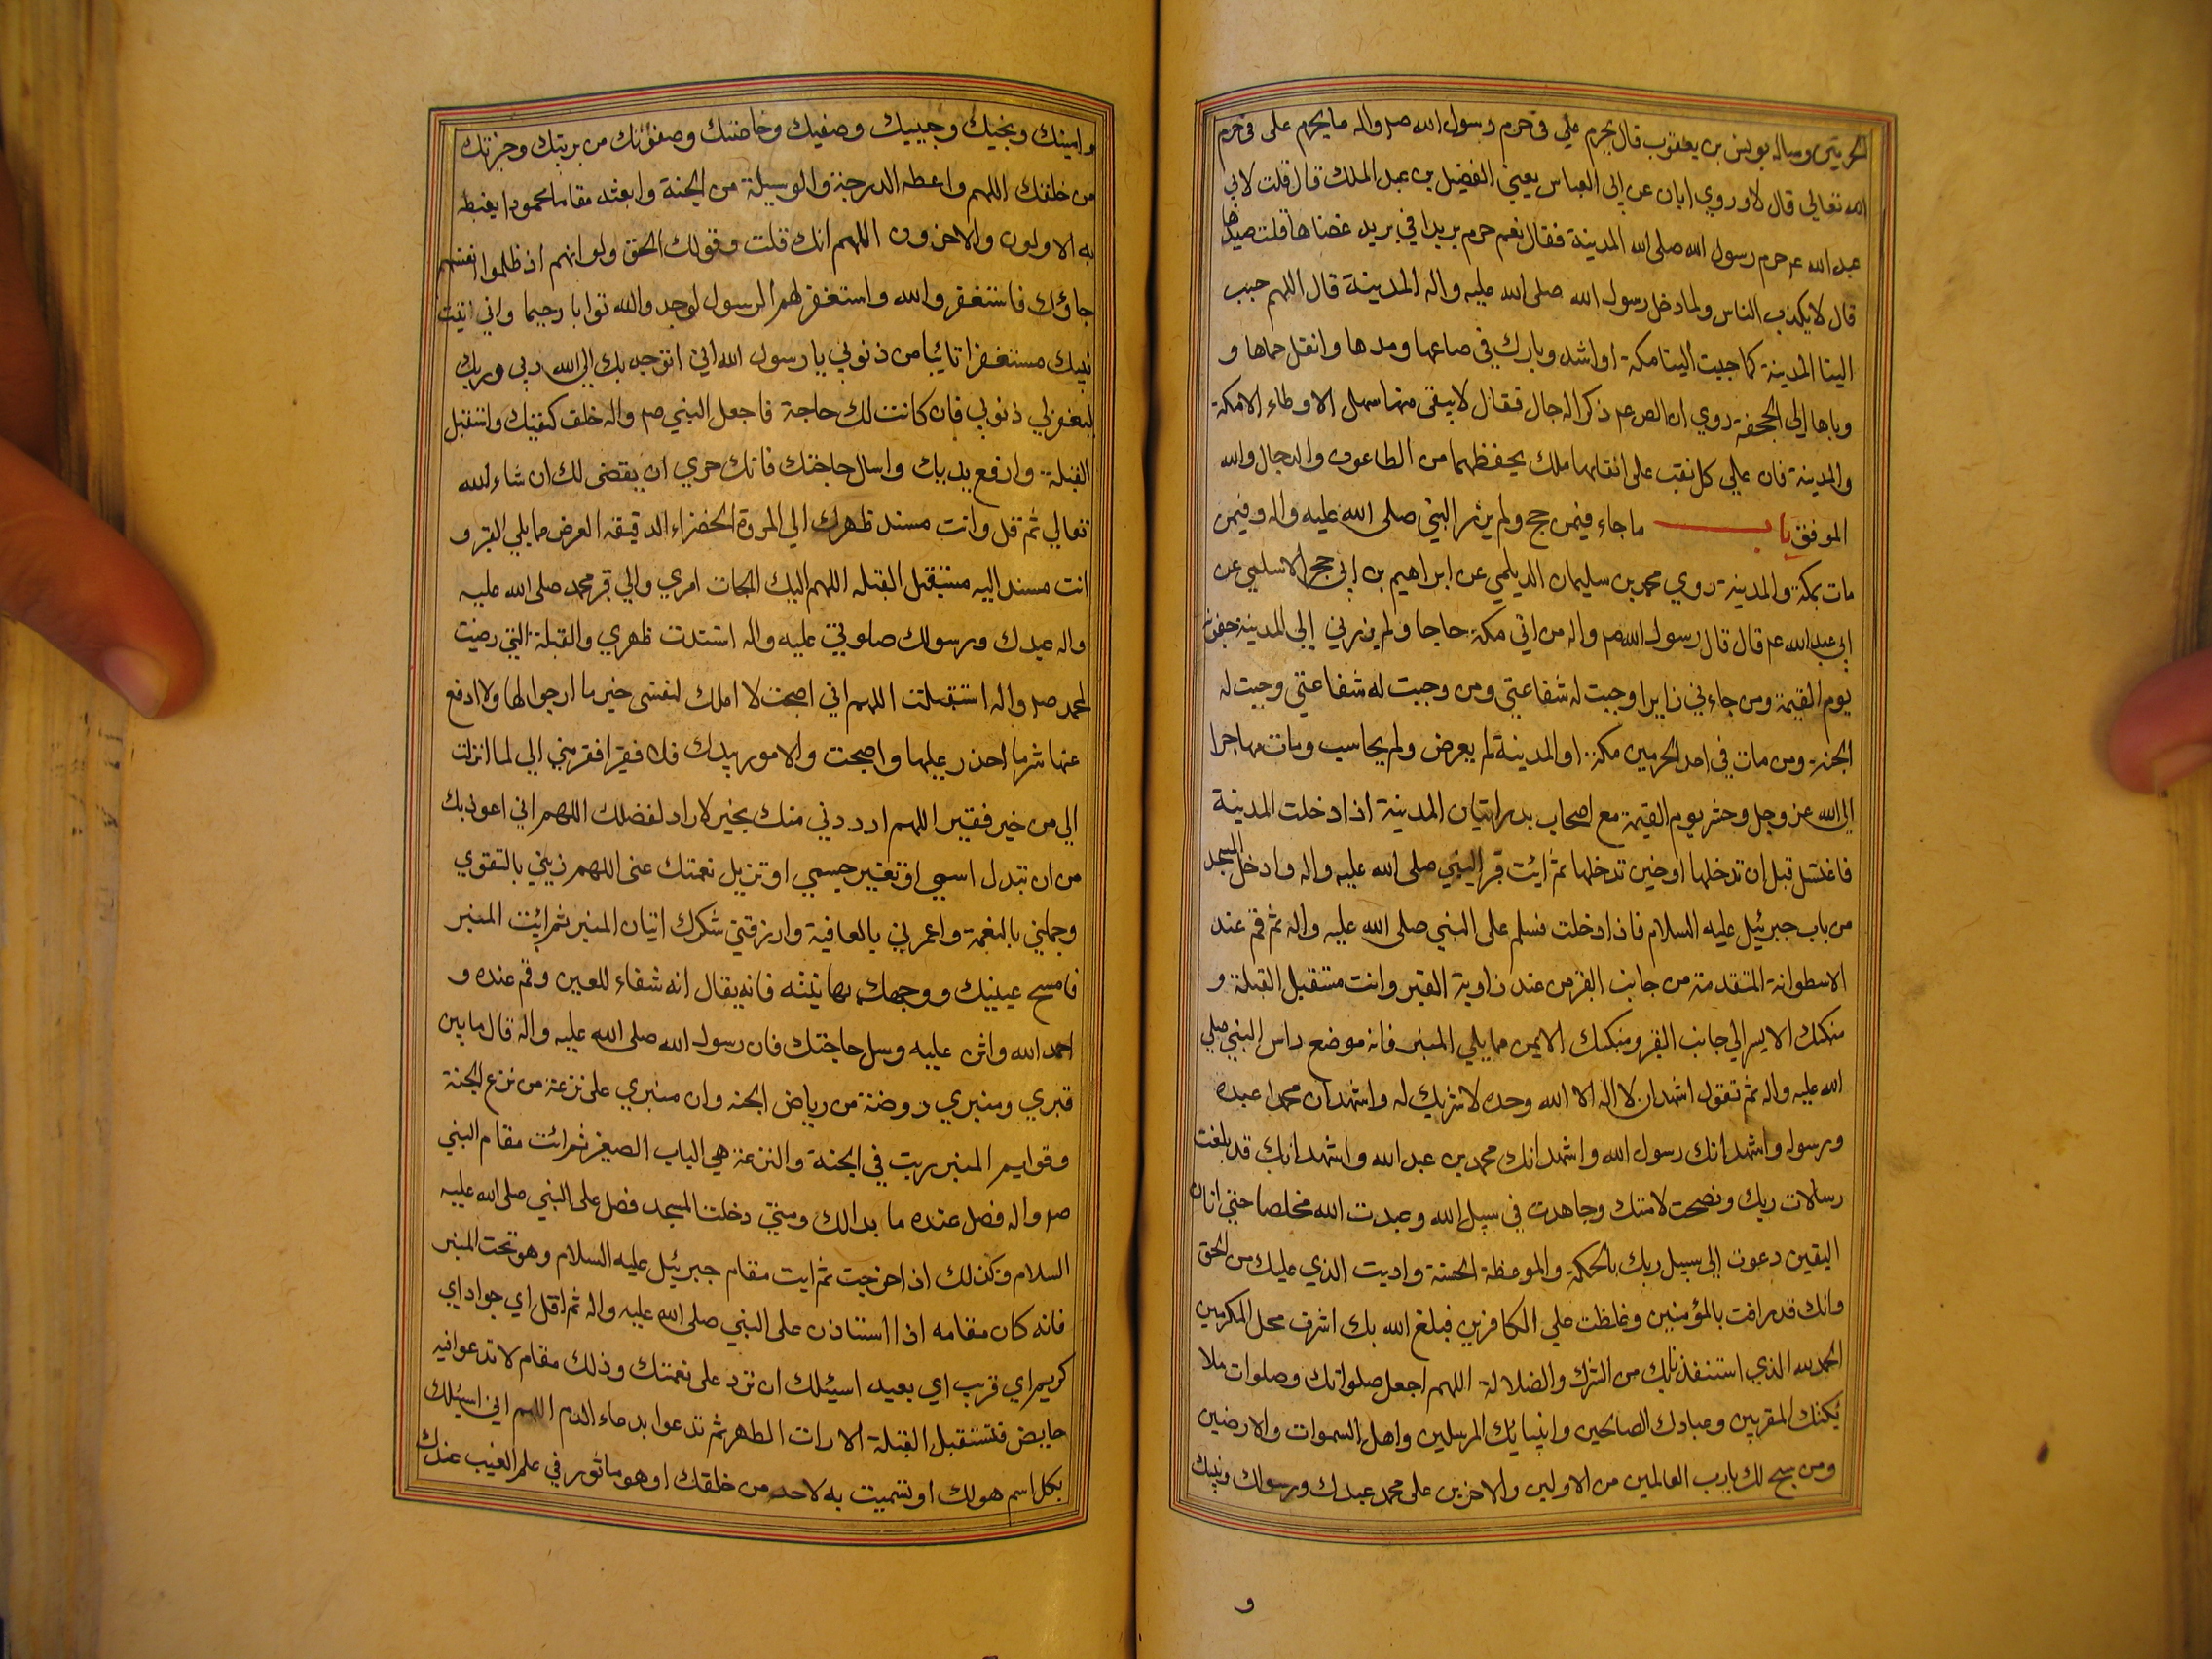 الحرتين وساله يونس بن يعقوب قال يحرم علي في حرم رسول الله صم واله ما يحرم على في حرم
الله تعالي قال لا وروي ابان عن ابي العباس يعني الفضيل بن عبد الملك قال قلت لابي
عبد الله عم حرم رسول الله صلى الله المدينة فقال نعم حرم بريدا في بريد غضاها قلت صيدها
قال لا يكذب الناس ولما دخل رسول الله صلى الله عليه واله المدينة قال اللهم حبب
الينا المدينة كما حببت الينا مكة او اشد وبارك في صاعها ومدها وانقل حماها و
وباها الي الجحفة روي ان الص عم ذكر الدجال فقال لا يبقى منها سهل الا وطاء الا مكة
والمدينة فان علي كل نقب على انقابها ملك يحفظهما من الطاعون والدجال والله
الموفق باب ما جاء فيمن حج ولم يزر النبي صلى الله عليه واله وفيمن
مات بمكة والمدينة روي محمد بن سليمان الديلمي عن ابراهيم بن ابي حجر الاسلمي عن
ابي عبد الله عم قال قال رسول الله صم واله من اتي مكة حاجا ولم يزرني الي المدينة جفوته
يوم القيمة ومن جاءني زايرا وجبت له شفاعتي ومن وجبت له شفاعتي وجبت له
الجنة ومن مات في احد الحرمين مكة او المدينة لم يعرض ولم يحاسب ومات مهاجرا
الي الله عز وجل وحشر يوم القيمة مع اصحاب بدر اتيان المدينة اذا دخلت المدينة
فاغتسل قبل ان تدخلها او حين تدخلها ثم ائت قبر النبي صلى الله عليه واله وادخل المسجد
من باب جبرئيل عليه السلام فاذا دخلت فسلم على النبي صلى الله عليه واله ثم قم عند
الاسطوانة المتقدمة من جانب القبر من عند زاوية القبر وانت مستقبل القبلة و
منكبك الايسر الي جانب القبر ومنكبك الايمن مما يلي المنبر فانه موضع راس النبي صلي
الله عليه واله ثم تقول اشهد ان لا اله الا الله وحده لا شريك له واشهد ان محمدا عبده
ورسوله واشهد انك رسول الله واشهد انك محمد بن عبد الله واشهد انك قد بلغت
رسالات ربك ونصحت لامتك وجاهدت في سبيل الله وعبدت الله مخلصا حتي اتاك
اليقين دعوت الي سبيل ربك بالحكمة والموعظة الحسنة واديت الذي عليك من الحق
وانك قد رافت بالمؤمنين وغلظت علي الكافرين فبلغ الله بك اشرف محل المكرمين
الحمد لله الذي استنقذنا بك من الشرك والضلالة اللهم اجعل صلواتك وصلوات ملا
ئكتك المقربين وعبادك الصالحين وانبيائك المرسلين واهل السموات والارضين
ومن سبح لك يا رب العالمين من الاولين والاخرين على محمد عبدك ورسولك ونبيك
و
وامينك ونجيك وحبيبك وصفيك وخاصتك وصفوتك من بريتك وخيرتك
من خلقك اللهم واعطه الدرجة والوسيلة من الجنة وابعثه مقاما محمودا يغبطه
به الاولون والاخرون اللهم انك قلت وقولك الحق ولو انهم اذ ظلموا انفسهم
جاؤك فاستغفروا الله واستغفر لهم الرسول لوجدوا الله توابا رحيما واني اتيت
نبيك مستغفرا تائبا من ذنوبي يا رسول الله اني اتوجه بك الي الله ربي وربك
ليغفر لي ذنوبي فان كانت لك حاجة فاجعل النبي صم واله خلف كتفيك واستقبل
القبلة وارفع يديك واسال حاجتك فانك حري ان يقضى لك ان شاء الله
تعالي ثم قل وانت مسند ظهرك الي المروة الخضراء الدقيقة العرض مما يلي القبر و
انت مسند اليه مستقبل القبلة اللهم اليك الجات امري والي قبر محمد صلى الله عليه
واله عبدك ورسولك صلوتي عليه واله اسندت ظهري والقبلة التي رضيت
لمحمد صم واله استقبلت اللهم اني اصبحت لا املك لنفسى خير ما ارجوا لها ولا ادفع
عنها شر ما احذر عليها واصبحت والامور بيدك فلا فقير افقر مني اني لما انزلت
الي من خير فقير اللهم ارددني منك بخير لا راد لفضلك اللهم اني اعوذ بك
من ان تبدل اسمي او تغير جسمي او تزيل نعمتك عني اللهم زيني بالتقوي
وجملني بالنعمة واعمرني بالعافية وارزقني شكرك اتيان المنبر ثم ائت المنبر
فامسح عينيك ووجهك برمانيته فانه يقال انه شفاء للعين وقم عنده و
احمد الله واثن عليه وسل حاجتك فان رسول الله صلى الله عليه واله قال ما بين
قبري ومنبري روضة من رياض الجنه وان منبري على ترعة من ترع الجنة
وقوايم المنبر ربت في الجنة والترعة هي الباب الصغير ثم ائت مقام النبي
صم واله فصل عنده ما بدالك ومتي دخلت المسجد فصل على النبي صلى الله عليه
السلام وكذلك اذا خرجت ثم ايت مقام جبرئيل عليه السلام وهو تحت المنبر
فانه كان مقامه اذا استاذن على النبي صلى الله عليه واله ثم اقل اي جواد اي
كريم اي قريب اي بعيد اسئلك ان ترد على نعمتك وذلك مقام لا تدعوا فيه
حايض فتستقبل القبلة الا رات الطهر ثم تدعوا بدعاء الدم اللهم اني اسئلك
بكل اسم هو لك او تسميت به لاحد من خلقك او هو ماثور في علم الغيب عندك